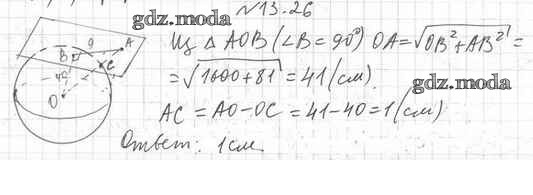 gdz.moda
№13-26
Из △ AOB (∠B = 90°) OA = √OB² + AB² =
= √1600 + 81 = 41 (см)
gdz.moda
AC = AO - OC = 41 - 40 = 1 (см)
Ответ: 1 см.
B 9 A
C
40
O